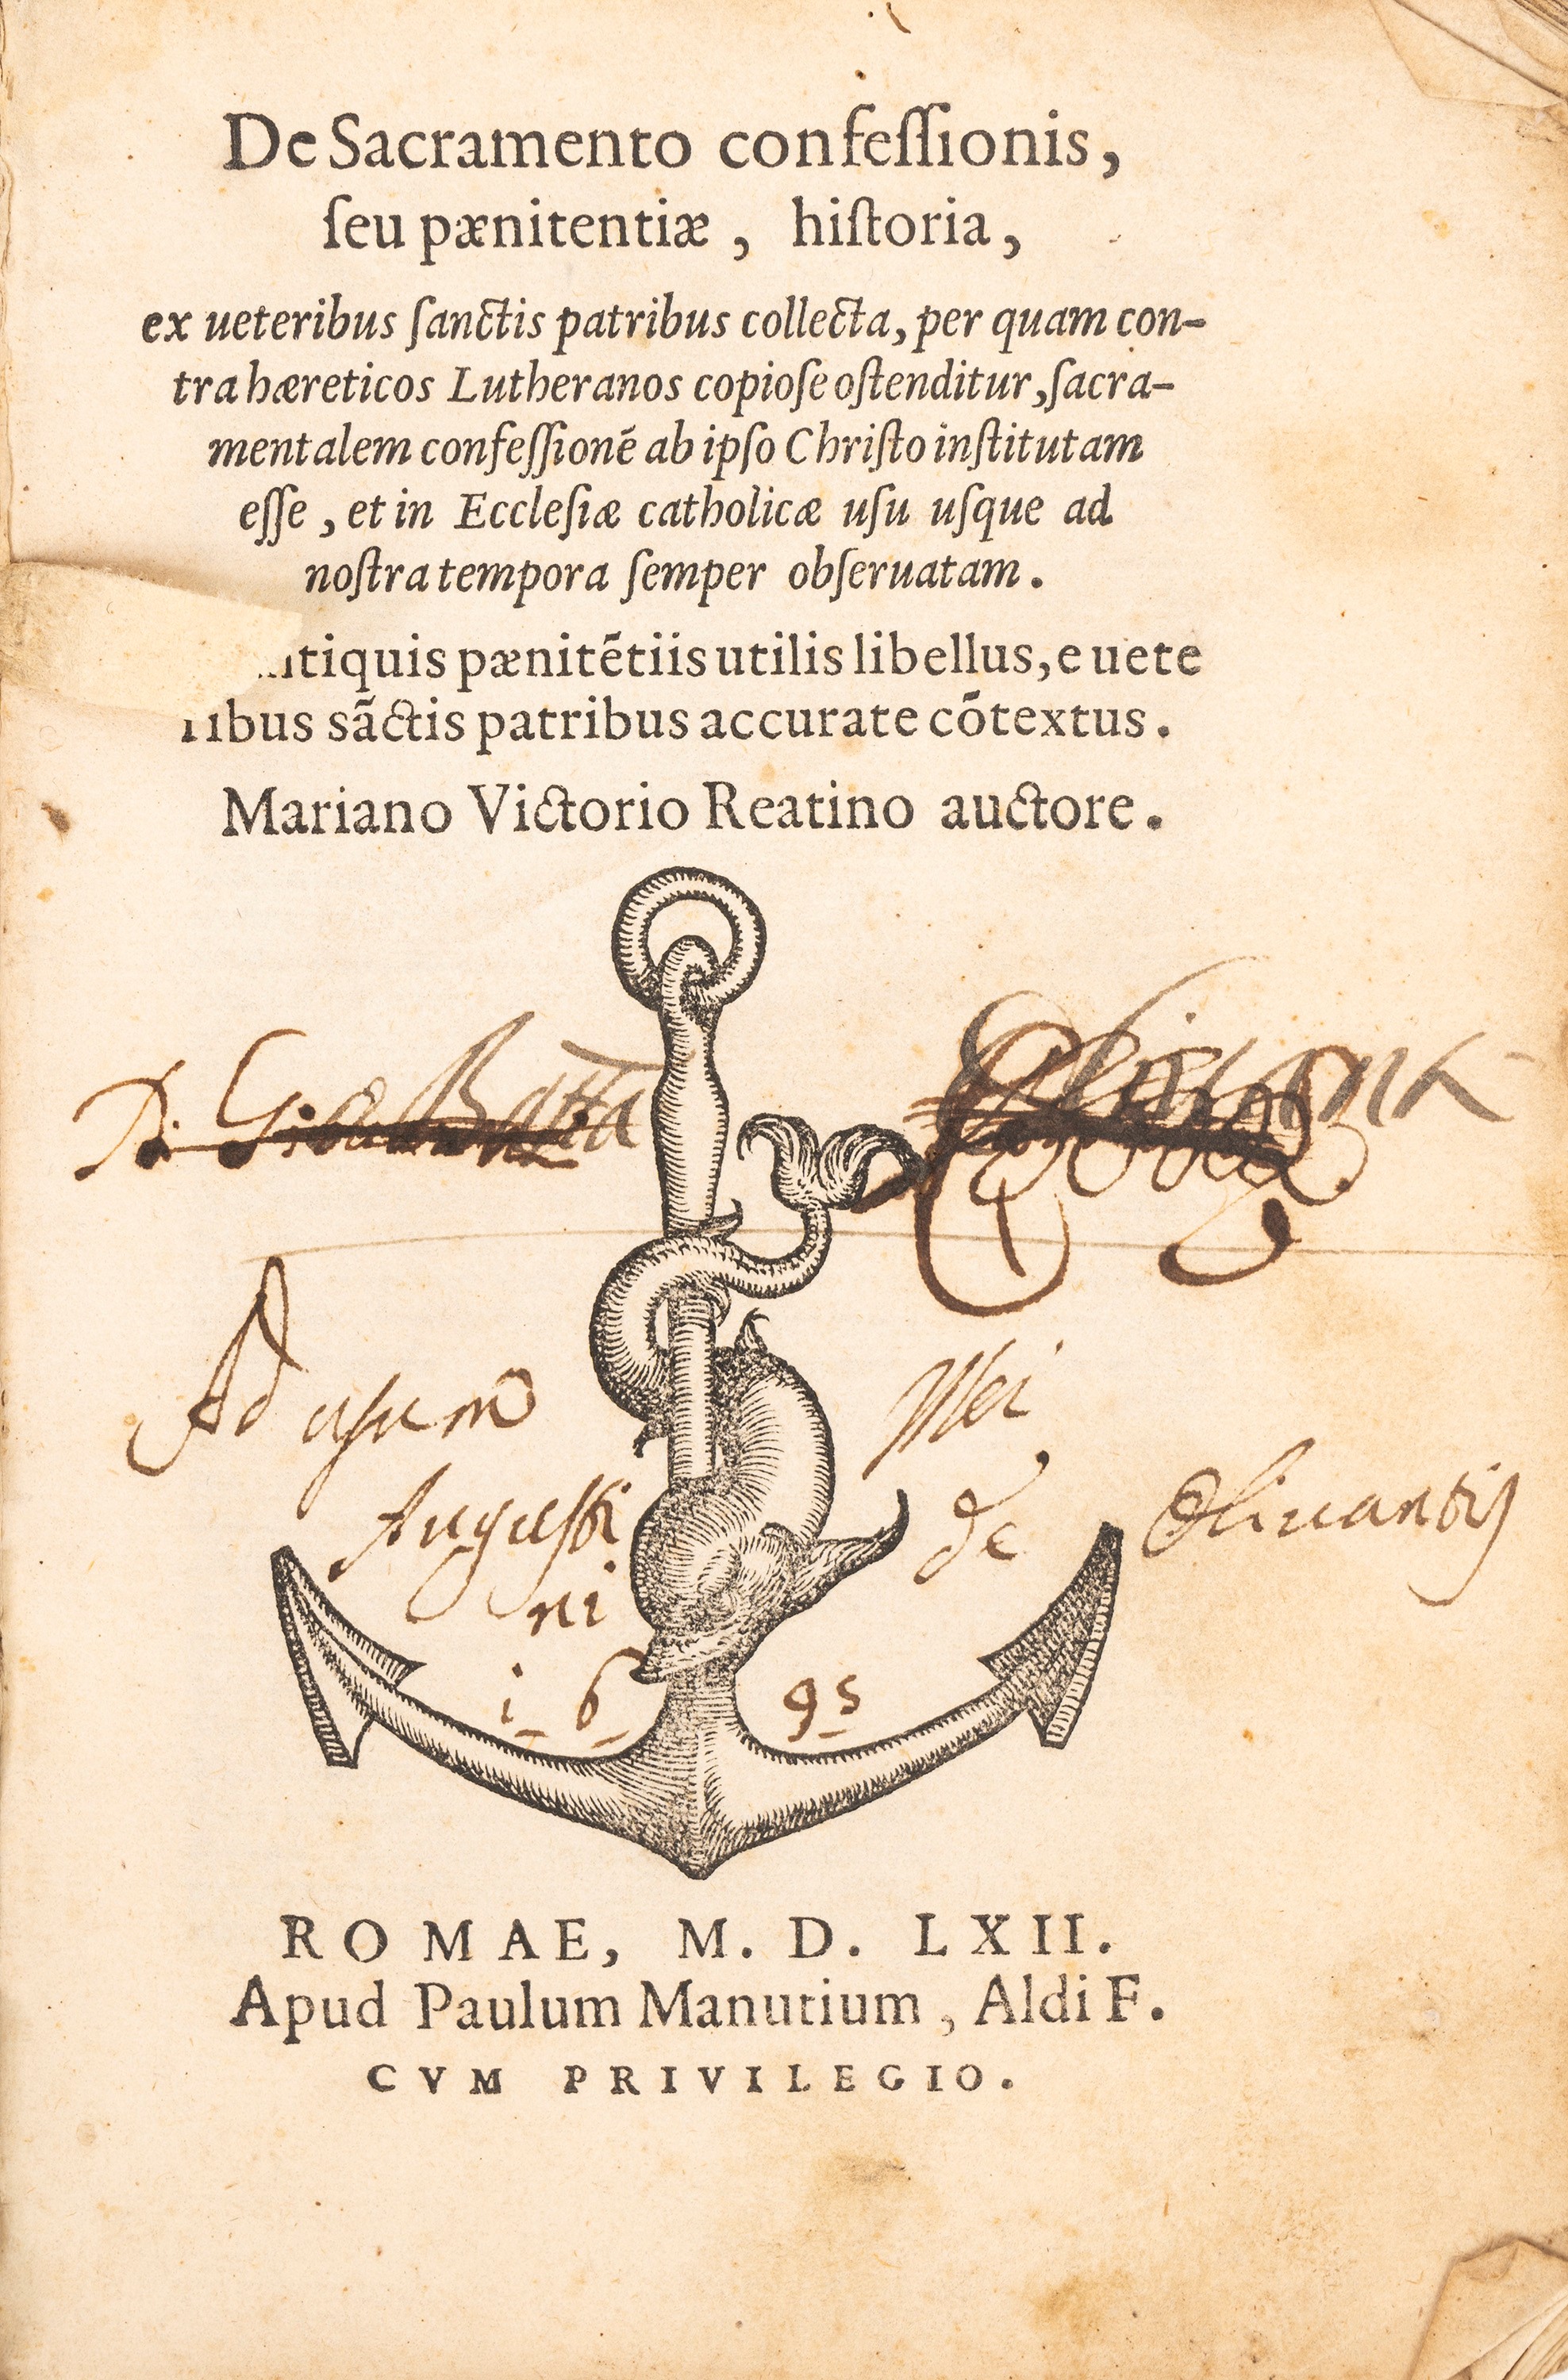 De Sacramento confeſſionis,
ſeu pænitentiæ, hiſtoria,
ex ueteribus ſanctis patribus collecta, per quam con-
tra hæreticos Lutheranos copioſe oſtenditur, ſacra-
mentalem confeſſionẽ ab ipſo Chriſto inſtitutam
eſſe, et in Eccleſiæ catholicæ uſu uſque ad
noſtra tempora ſemper obſeruatam.
tiquis pænitẽtiis utilis libellus, e uete
ribus sãctis patribus accurate cõtextus.
Mariano Victorio Reatino auctore.
D. Gio Batta
Ad usum Mei
Augusti de Oliuantij
ni
i6 95
ROMAE, M. D. LXII.
Apud Paulum Manutium, Aldi F.
CVM PRIVILEGIO.